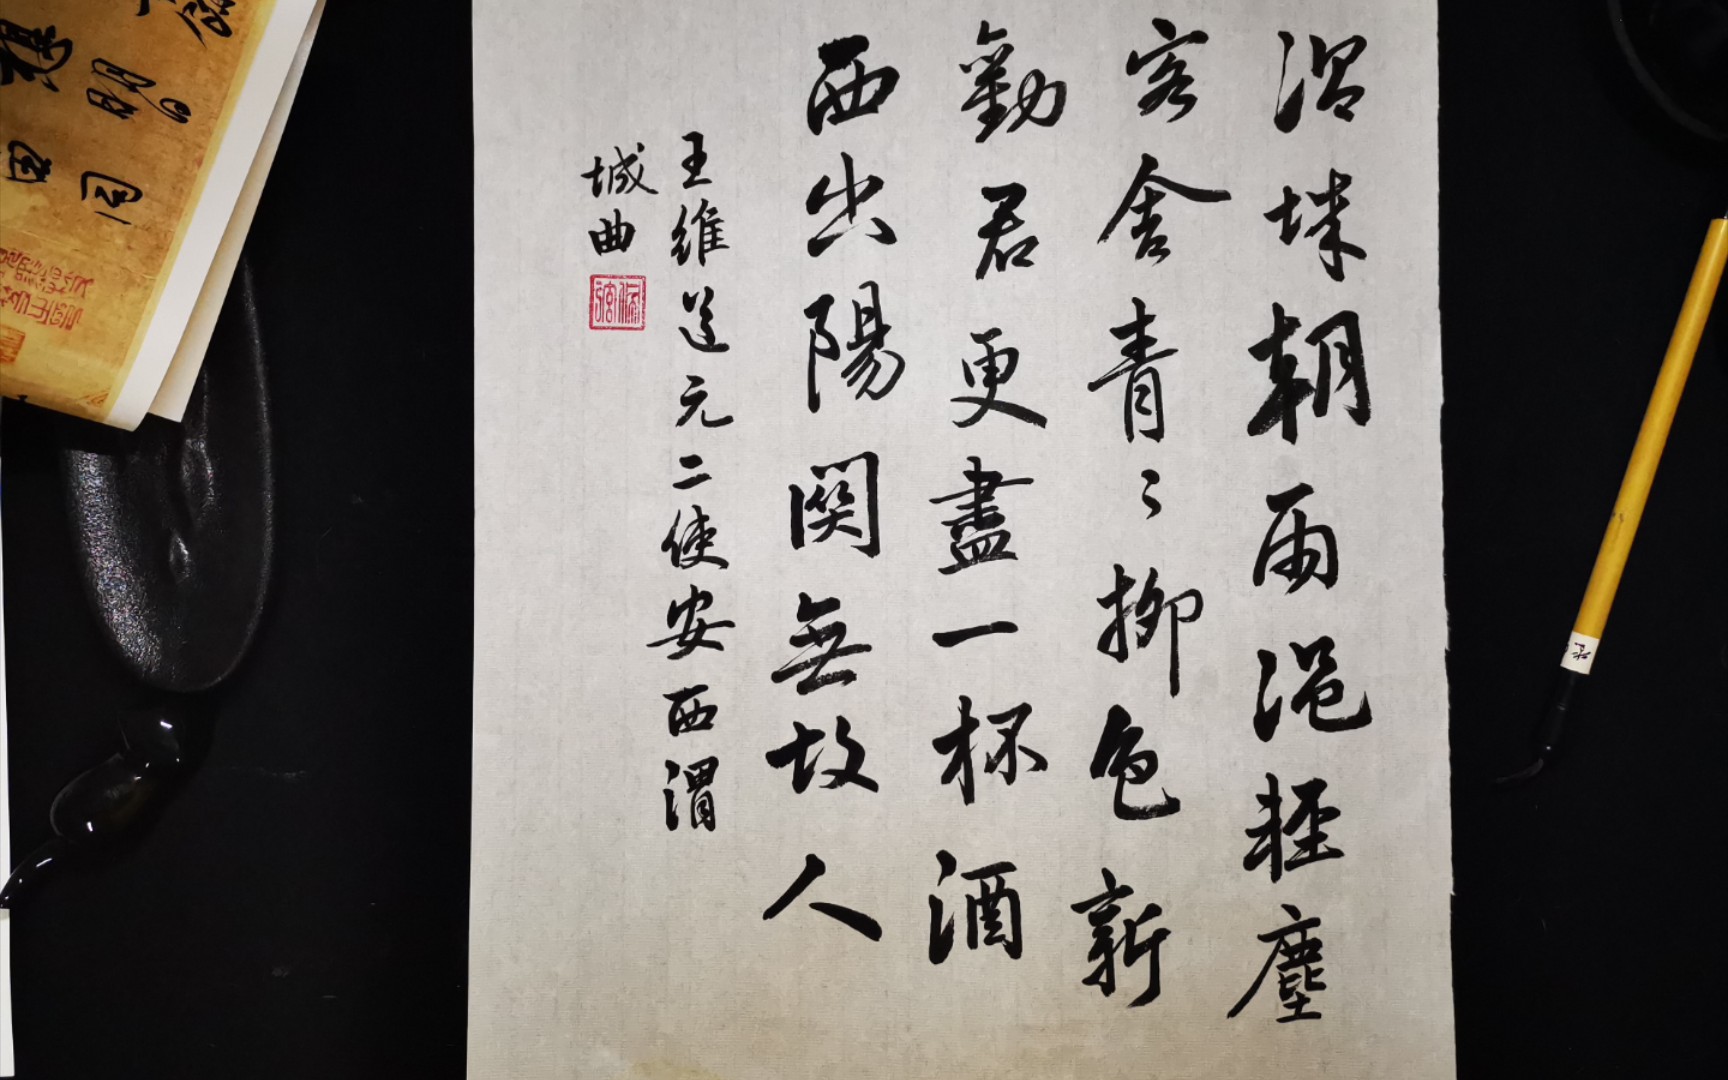 渭城朝雨浥輕塵
客舍青〻柳色新
勸君更盡一杯酒
西出陽關無故人
王維送元二使安西渭
城曲